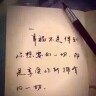 幸福不是得到
你想要的一切
而是享受你所拥有
的一切.